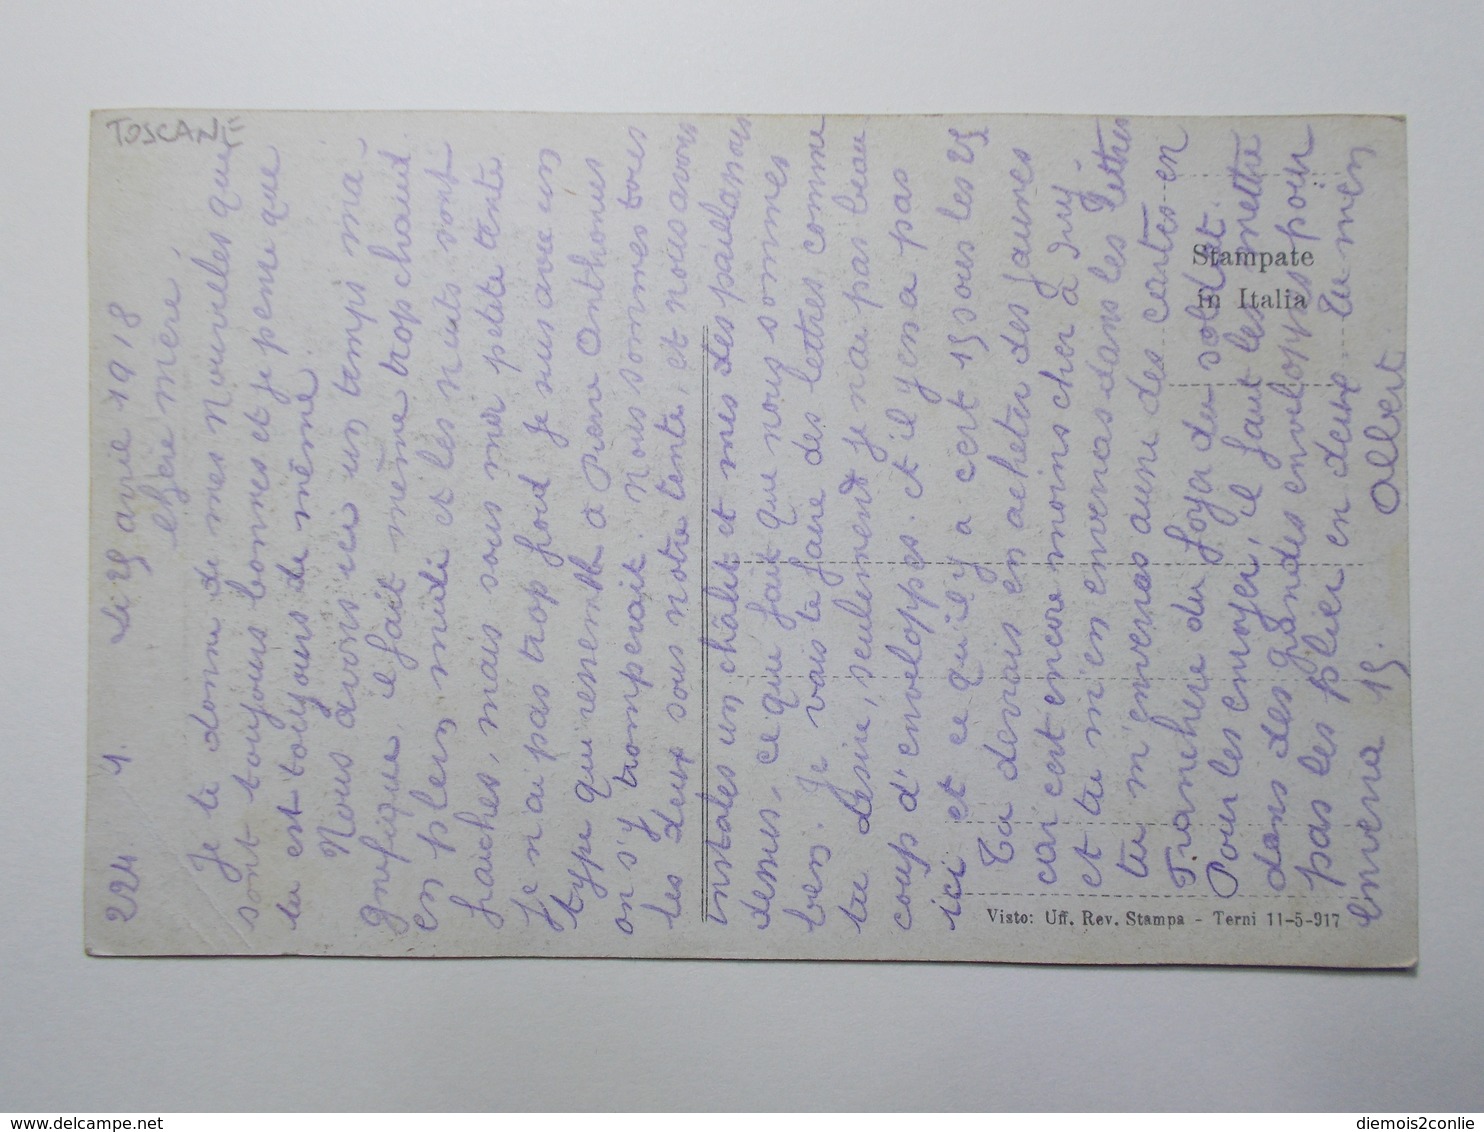 TOSCANE
224. 1. Le 25 avril 1918
Chère mère
Je te donne de mes nouvelles qui
sont toujours bonnes et je pense que
tu est toujours de même.
Nous avons ici un temps ma-
gnifique, il fait même trop chaud
en plein midi et les nuits sont
fraiches, mais sous mer petite tente
Je n'ai pas trop froid Je suis avec un
type qui ressemble à Pierre Anthonies
on s'y tromperait. Nous sommes tous
les deux sous notre tente, et nous avons
installés un châlit et mis des paillassons
dessus, ce qui fait que nous sommes
bien. Je vais te faire des lettres comme
tu désire, seulement je n'ai pas beau
coup d'enveloppes. et il y en a pas
ici et ce qu'il y a cert 15 sous les 25
Tu devrais en acheter des jaunes
car cert encore moins cher à Juvy
et tu m'en enverras dans les lettres
tu m'enverras aussi des cartes en
Franchise du foyer du soldat.
Pour les envoyer, il faut les mettre
dans des grandes enveloppes pour
pas les plier en deux tu m'en
enverra 15. Albert
Stampate
in Italia
Visto: Uff. Rev. Stampa - Terni 11-5-917
delcampe.net
diemois2conlie